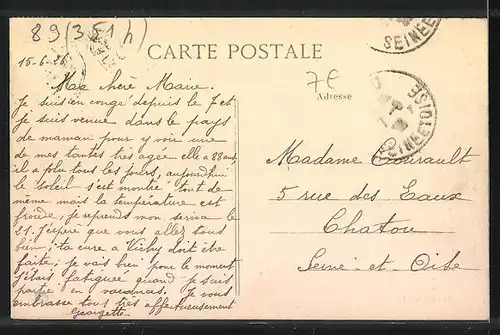 89 (351 h)
CARTE POSTALE
15-6-26
7E
Adresse
SEINE ET
SEINE ET OISE
Ma chère Marie.
Je suis en congé depuis le 7 et
je suis venue dans le pays
de maman pour y voir une
de mes tantes très agée elle a 88 ans
il a plu tous les jours, aujourd'hui
le soleil s'est montré tout de
même mais la température est
froide, je reprends mon service le
21. J'espère que vous allez tous
bien; ta cure à Vichy doit être
faite; je vais bien pour le moment
j'étais fatiguée quand je suis
partie en vacances. Je vous
embrasse tous très affectueusement
Georgette
Madame
5 rue des Eaux
Chatou
Seine-et-Oise